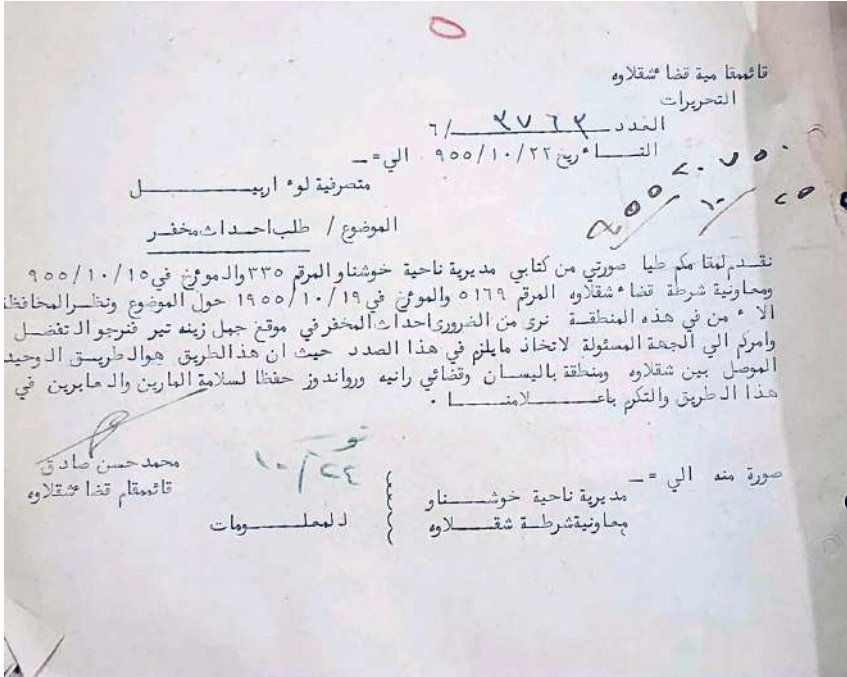 قائممقامية قضاء شقلاوه
التحريرات
العدد ٣٧٦٣ /٦
التاريخ ٩٥٥/١٠/٢٢ الي =
٢٠٧٥٠
٩٥٥/١٠/٢٥
متصرفية لوء اربيل
الموضوع / طلب احداث مخفر
نقدم لمقامكم طيا صورتي من كتابي مديرية ناحية خوشناو المرقم ٣٣٥ والموئرخ في ٩٥٥/١٠/١٥
ومعاونية شرطة قضاء شقلاوه المرقم ٥١٦٩ والموئخ في ١٩٥٥/١٠/١٩ حول الموضوع ونظر المحافظة
الاءمن في هذه المنطقة نرى من الضروري احداث المخفر في موقع جبل زينه تير فنرجو التفضل
وامركم الي الجهة المسئولة لاتخاذ مايلزم في هذا الصدد حيث ان هذالطريق هوالطريق الوحيد
الموصل بين شقلاوه ومنطقة باليسان وقضائي رانيه ورواندوز حفظا لسلامة المارين والعابرين في
هذا الطريق والتكرم باعلامنا .
١٠/٢٤
محمد حسن صادق
قائممقام قضاء شقلاوه
صورة منه الي =
مديرية ناحية خوشناو
معاونية شرطة شقلاوه
للمعلومات